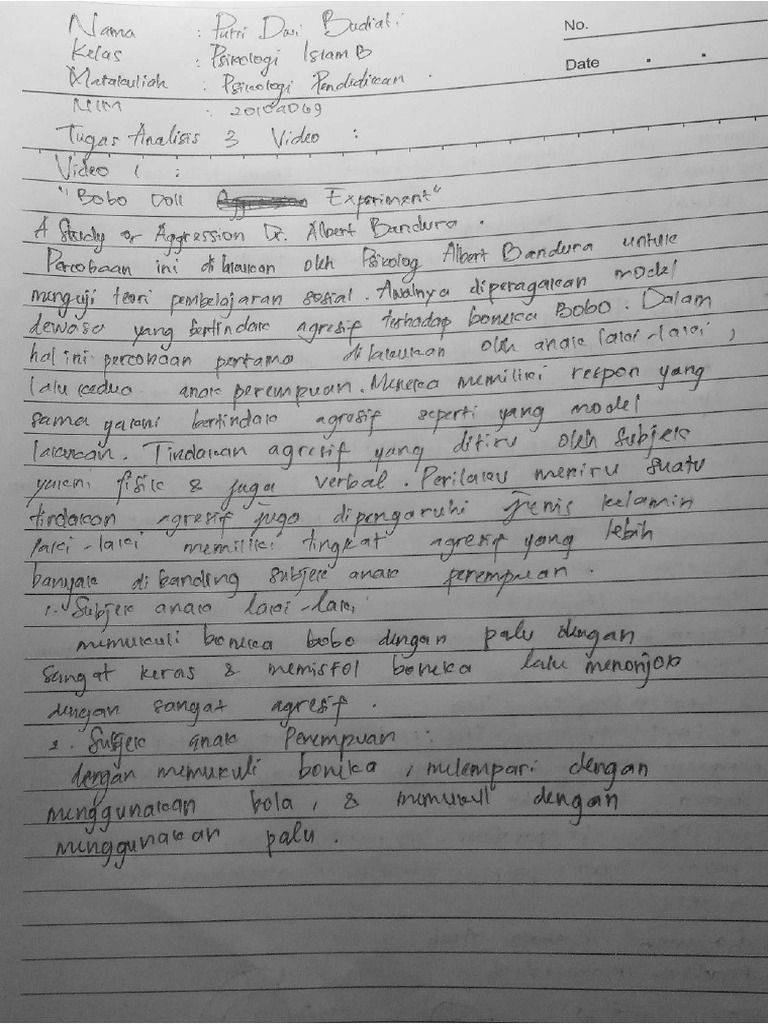 Nama : Putri Dwi Budiati
No.
Kelas : Psikologi Islam B
Date
Matakuliah : Psikologi Pendidikan.
NIM : 20104069
Tugas Analisis 3 Video :
Video 1 :
"Bobo Doll Experiment"
A Study or Aggression Dr. Albert Bandura.
Percobaan ini dilakukan oleh Psikolog Albert Bandura untuk
menguji teori pembelajaran sosial. Awalnya diperagakan model
dewasa yang bertindak agresif terhadap boneka Bobo. Dalam
hal ini percobaan pertama dilakukan oleh anak laki-laki,
lalu kedua anak perempuan. Mereka memiliki respon yang
sama yakni bertindak agresif seperti yang model
lakukan. Tindakan agresif yang ditiru oleh subjek
yakni fisik & juga verbal. Perilaku meniru suatu
tindakan agresif juga dipengaruhi jenis kelamin
laki-laki memiliki tingkat agresif yang lebih
banyak dibanding subjek anak perempuan.
1. Subjek anak laki-laki
memukuli boneka bobo dengan palu dengan
sangat keras & memistol boneka lalu menonjok
dengan sangat agresif.
2. Subjek anak Perempuan :
dengan memukuli bonika, melempari dengan
menggunakan bola, & memukul dengan
menggunakan palu.